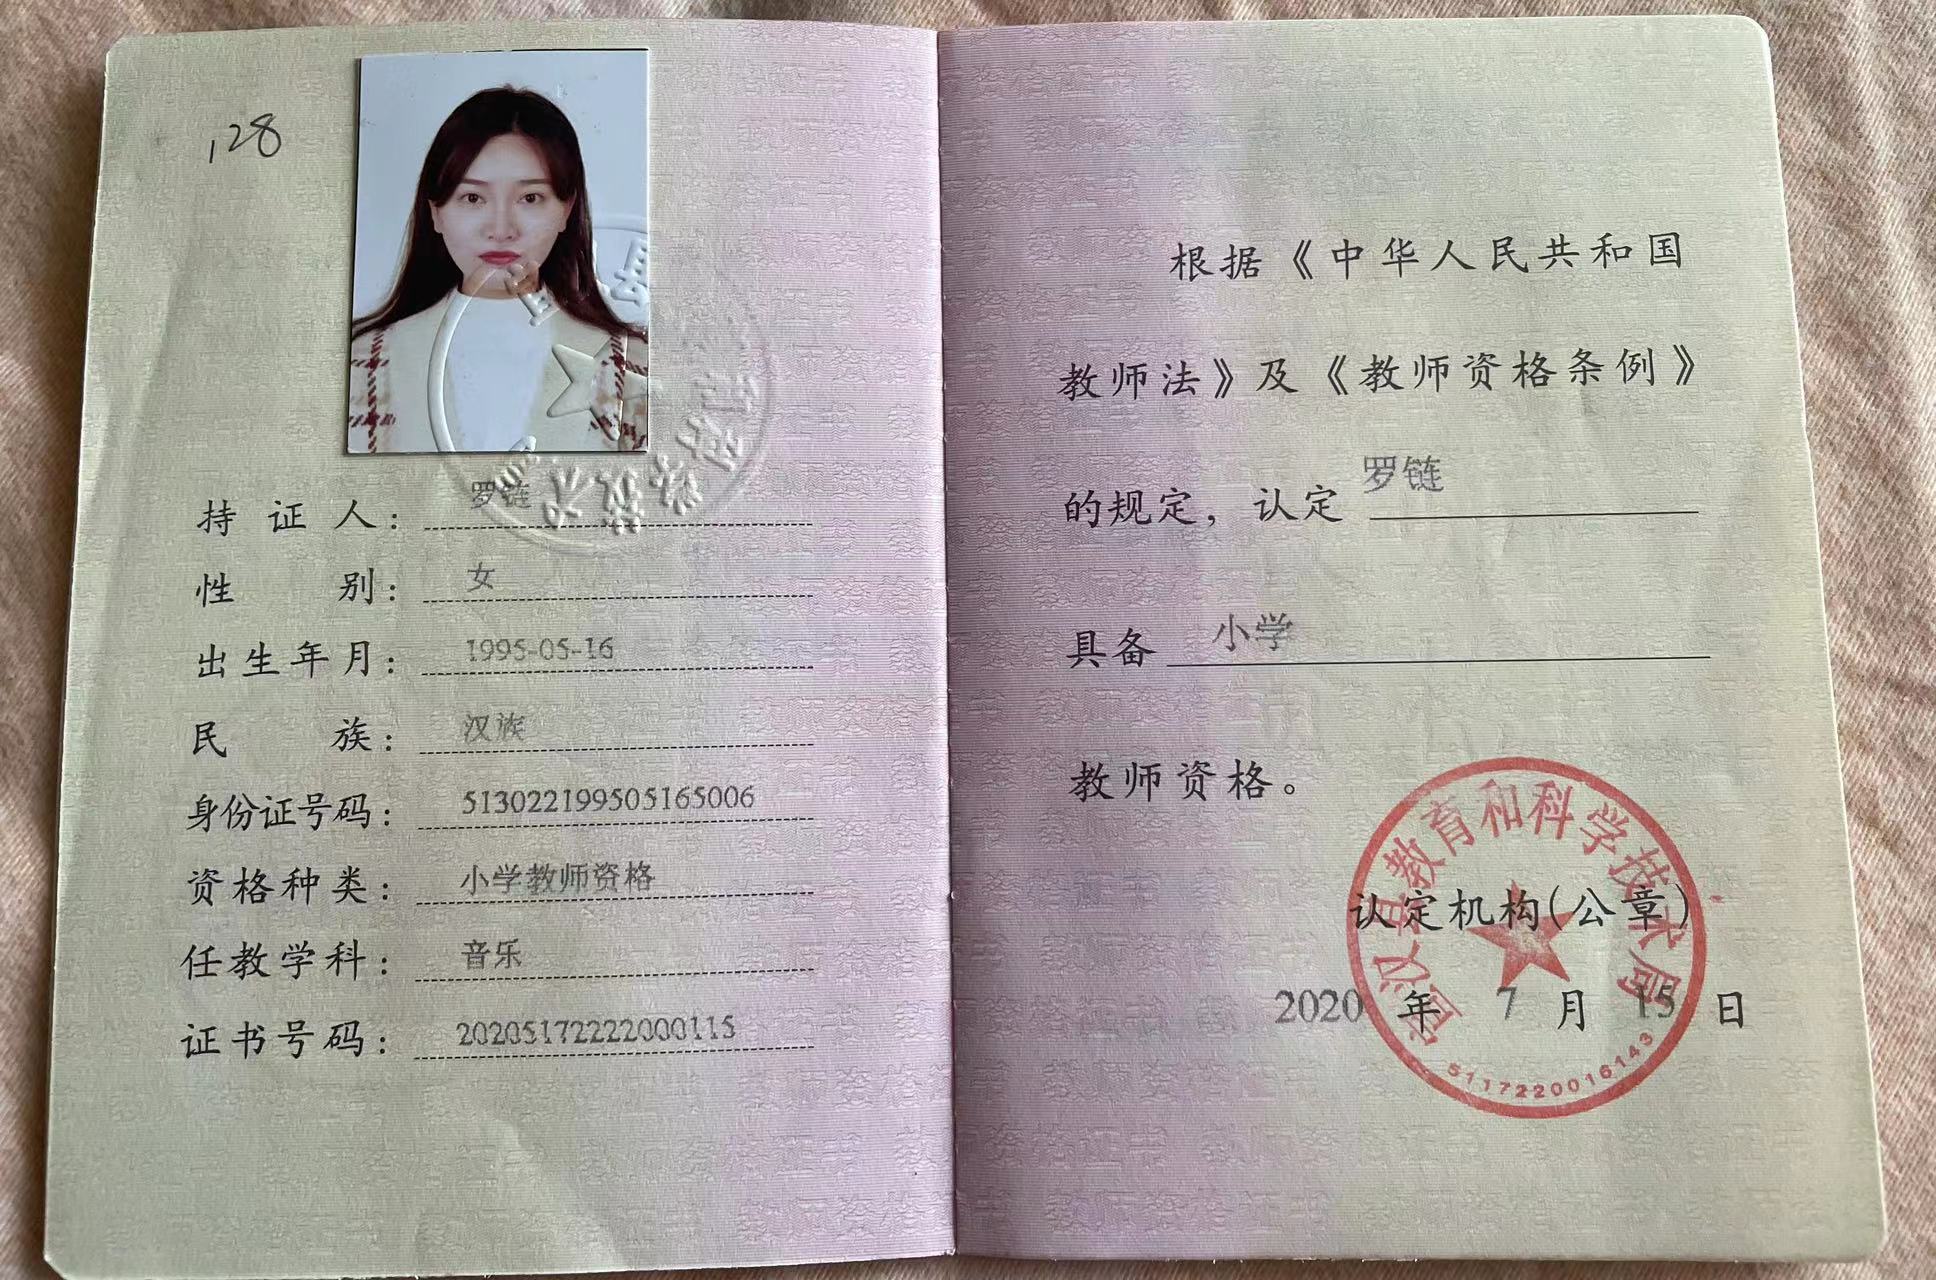 128
持证人：罗链
性别：女
出生年月：1995-05-16
民族：汉族
身份证号码：513022199505165006
资格种类：小学教师资格
任教学科：音乐
证书号码：20205172222000115
根据《中华人民共和国
教师法》及《教师资格条例》
的规定，认定 罗链
具备 小学
教师资格。
宣汉县教育和科学技术局
认定机构(公章)
2020 年 7 月 15 日
5117220016143